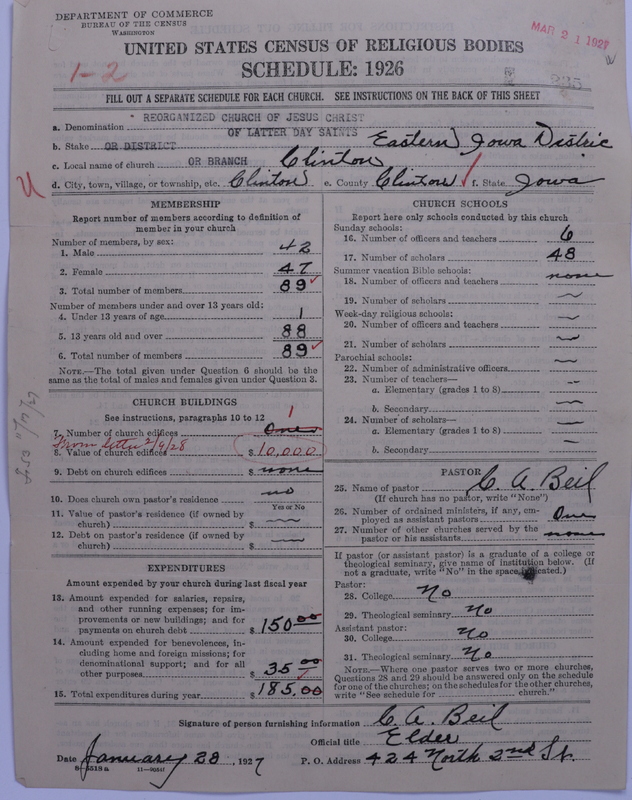 DEPARTMENT OF COMMERCE
BUREAU OF THE CENSUS
WASHINGTON
MAR 21 1927
UNITED STATES CENSUS OF RELIGIOUS BODIES
1-2
SCHEDULE: 1926
FILL OUT A SEPARATE SCHEDULE FOR EACH CHURCH. SEE INSTRUCTIONS ON THE BACK OF THIS SHEET
REORGANIZED CHURCH OF JESUS CHRIST
a. Denomination OF LATTER DAY SAINTS
b. Stake OR DISTRICT Eastern Iowa Distric
c. Local name of church OR BRANCH Clinton
d. City, town, village, or township, etc. Clinton e. County Clinton f. State Iowa
MEMBERSHIP
Report number of members according to definition of
member in your church
Number of members, by sex:
1. Male 42
2. Female 47
3. Total number of members 89
Number of members under and over 13 years old:
4. Under 13 years of age 1
5. 13 years old and over 88
6. Total number of members 89
NOTE.—The total given under Question 6 should be
same as the total of males and females given under Question 3.
CHURCH BUILDINGS
See instructions, paragraphs 10 to 12
7. Number of church edifices One 1
From letter 2/9/28
8. Value of church edifices $ 10,000
9. Debt on church edifices $ none
10. Does church own pastor's residence no
Yes or No
11. Value of pastor's residence (if owned by
church) $
12. Debt on pastor's residence (if owned by
church) $
EXPENDITURES
Amount expended by your church during last fiscal year
13. Amount expended for salaries, repairs,
and other running expenses; for im-
provements or new buildings; and for
payments on church debt $ 150.00
14. Amount expended for benevolences, in-
cluding home and foreign missions; for
denominational support; and for all
other purposes $ 35.00
15. Total expenditures during year $ 185.00
CHURCH SCHOOLS
Report here only schools conducted by this church
Sunday schools:
16. Number of officers and teachers 6
17. Number of scholars 48
Summer vacation Bible schools:
18. Number of officers and teachers none
19. Number of scholars
Week-day religious schools:
20. Number of officers and teachers
21. Number of scholars
Parochial schools:
22. Number of administrative officers
23. Number of teachers—
a. Elementary (grades 1 to 8)
b. Secondary
24. Number of scholars—
a. Elementary (grades 1 to 8)
b. Secondary
PASTOR
25. Name of pastor C. A. Beil
(If church has no pastor, write "None")
26. Number of ordained ministers, if any, em-
ployed as assistant pastors One
27. Number of other churches served by the
pastor or his assistants none
If pastor (or assistant pastor) is a graduate of a college or
theological seminary, give name of institution below. (If
not a graduate, write "No" in the space indicated.)
Pastor:
28. College No
29. Theological seminary No
Assistant pastor:
30. College No
31. Theological seminary No
NOTE.—Where one pastor serves two or more churches,
Questions 28 and 29 should be answered only on the schedule
for one of the churches; on the schedules for the other churches,
write "See schedule for church."
Signature of person furnishing information C. A. Beil
Official title Elder
Date January 28, 1927 P. O. Address 424 North 2nd St.